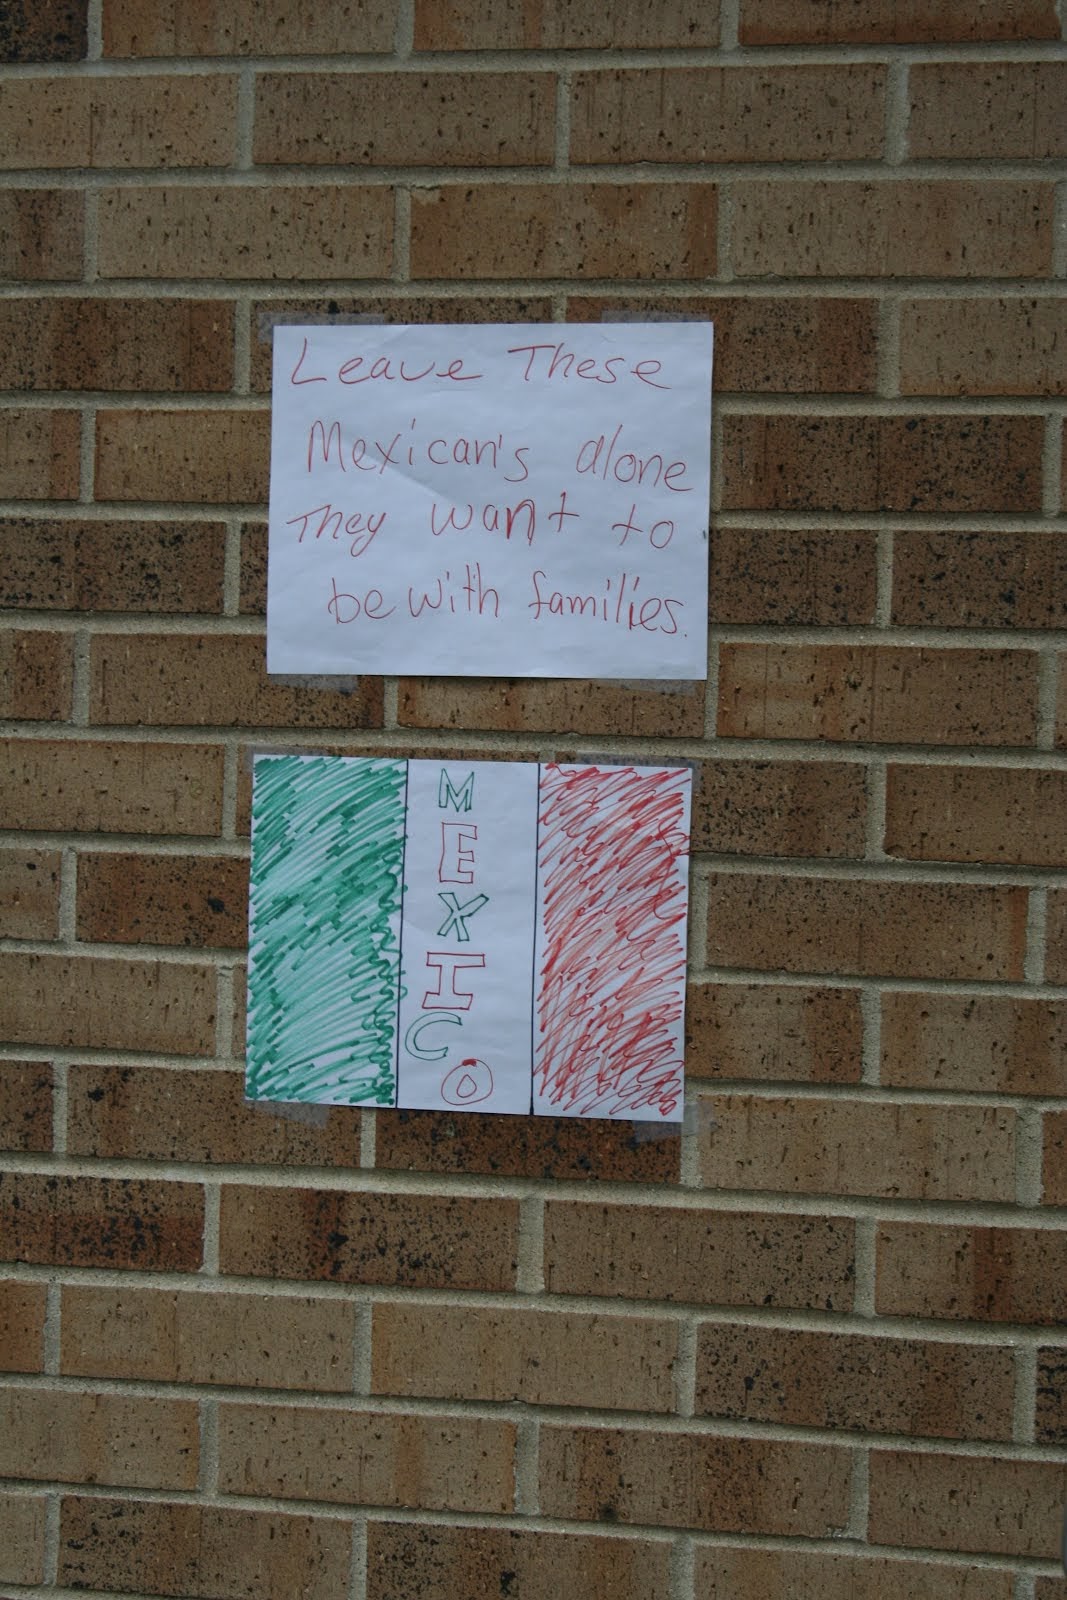 Leave These
Mexican's alone
They want to
be with families.
MEXICO